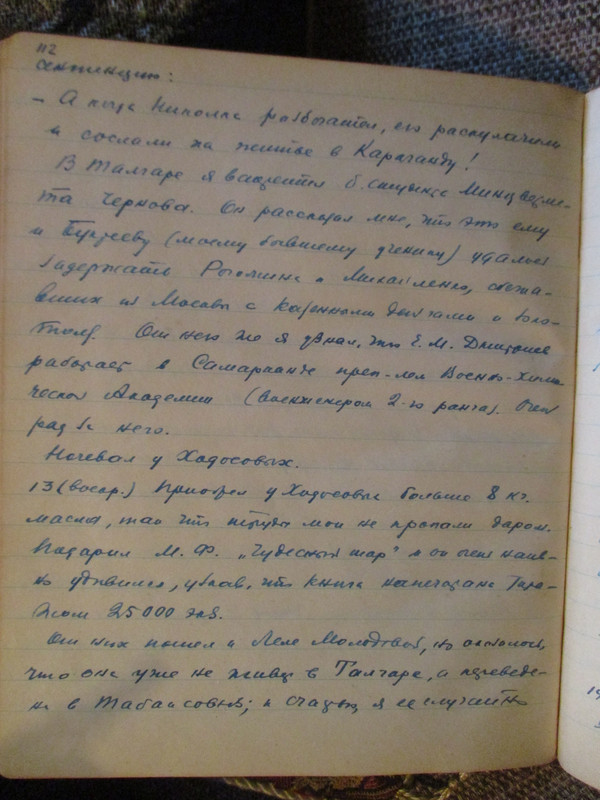 112
сентенцию:
– А когда Николка разбогател, его раскулачили
и сослали на житье в Караганду!
В Талгаре я встретил б. студента Минцветме-
та Чернова. Он рассказал мне, что это ему
и (моему бывшему ученику) удалось
задержать и Михайленко, сбежа-
вших из Москвы с казенными деньгами и золо-
том. От него же я узнал, что Е. М.
работает в Самарканде преп-лем Военно-Хими-
ческой Академии (военинженером 2-го ранга). Очень
рад за него.
Ночевал у Ходосовых.
13 (воскр.) Приобрел у Ходосовых больше 8 кг.
масла, так что труды мои не пропали даром.
Подарил М. Ф. „Чудесный шар" и он очень наив-
но удивился, узнав, что книга напечатана тира-
жом 25 000 экз.
От них пошел к Леле Молодовой, но оказалось,
что она уже не живет в Талгаре, а переведе-
на в; к счастью, я ее случайно